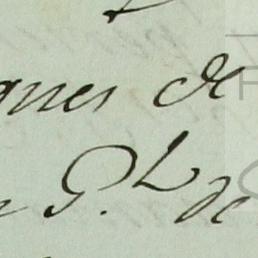 gnes de
e G.L de